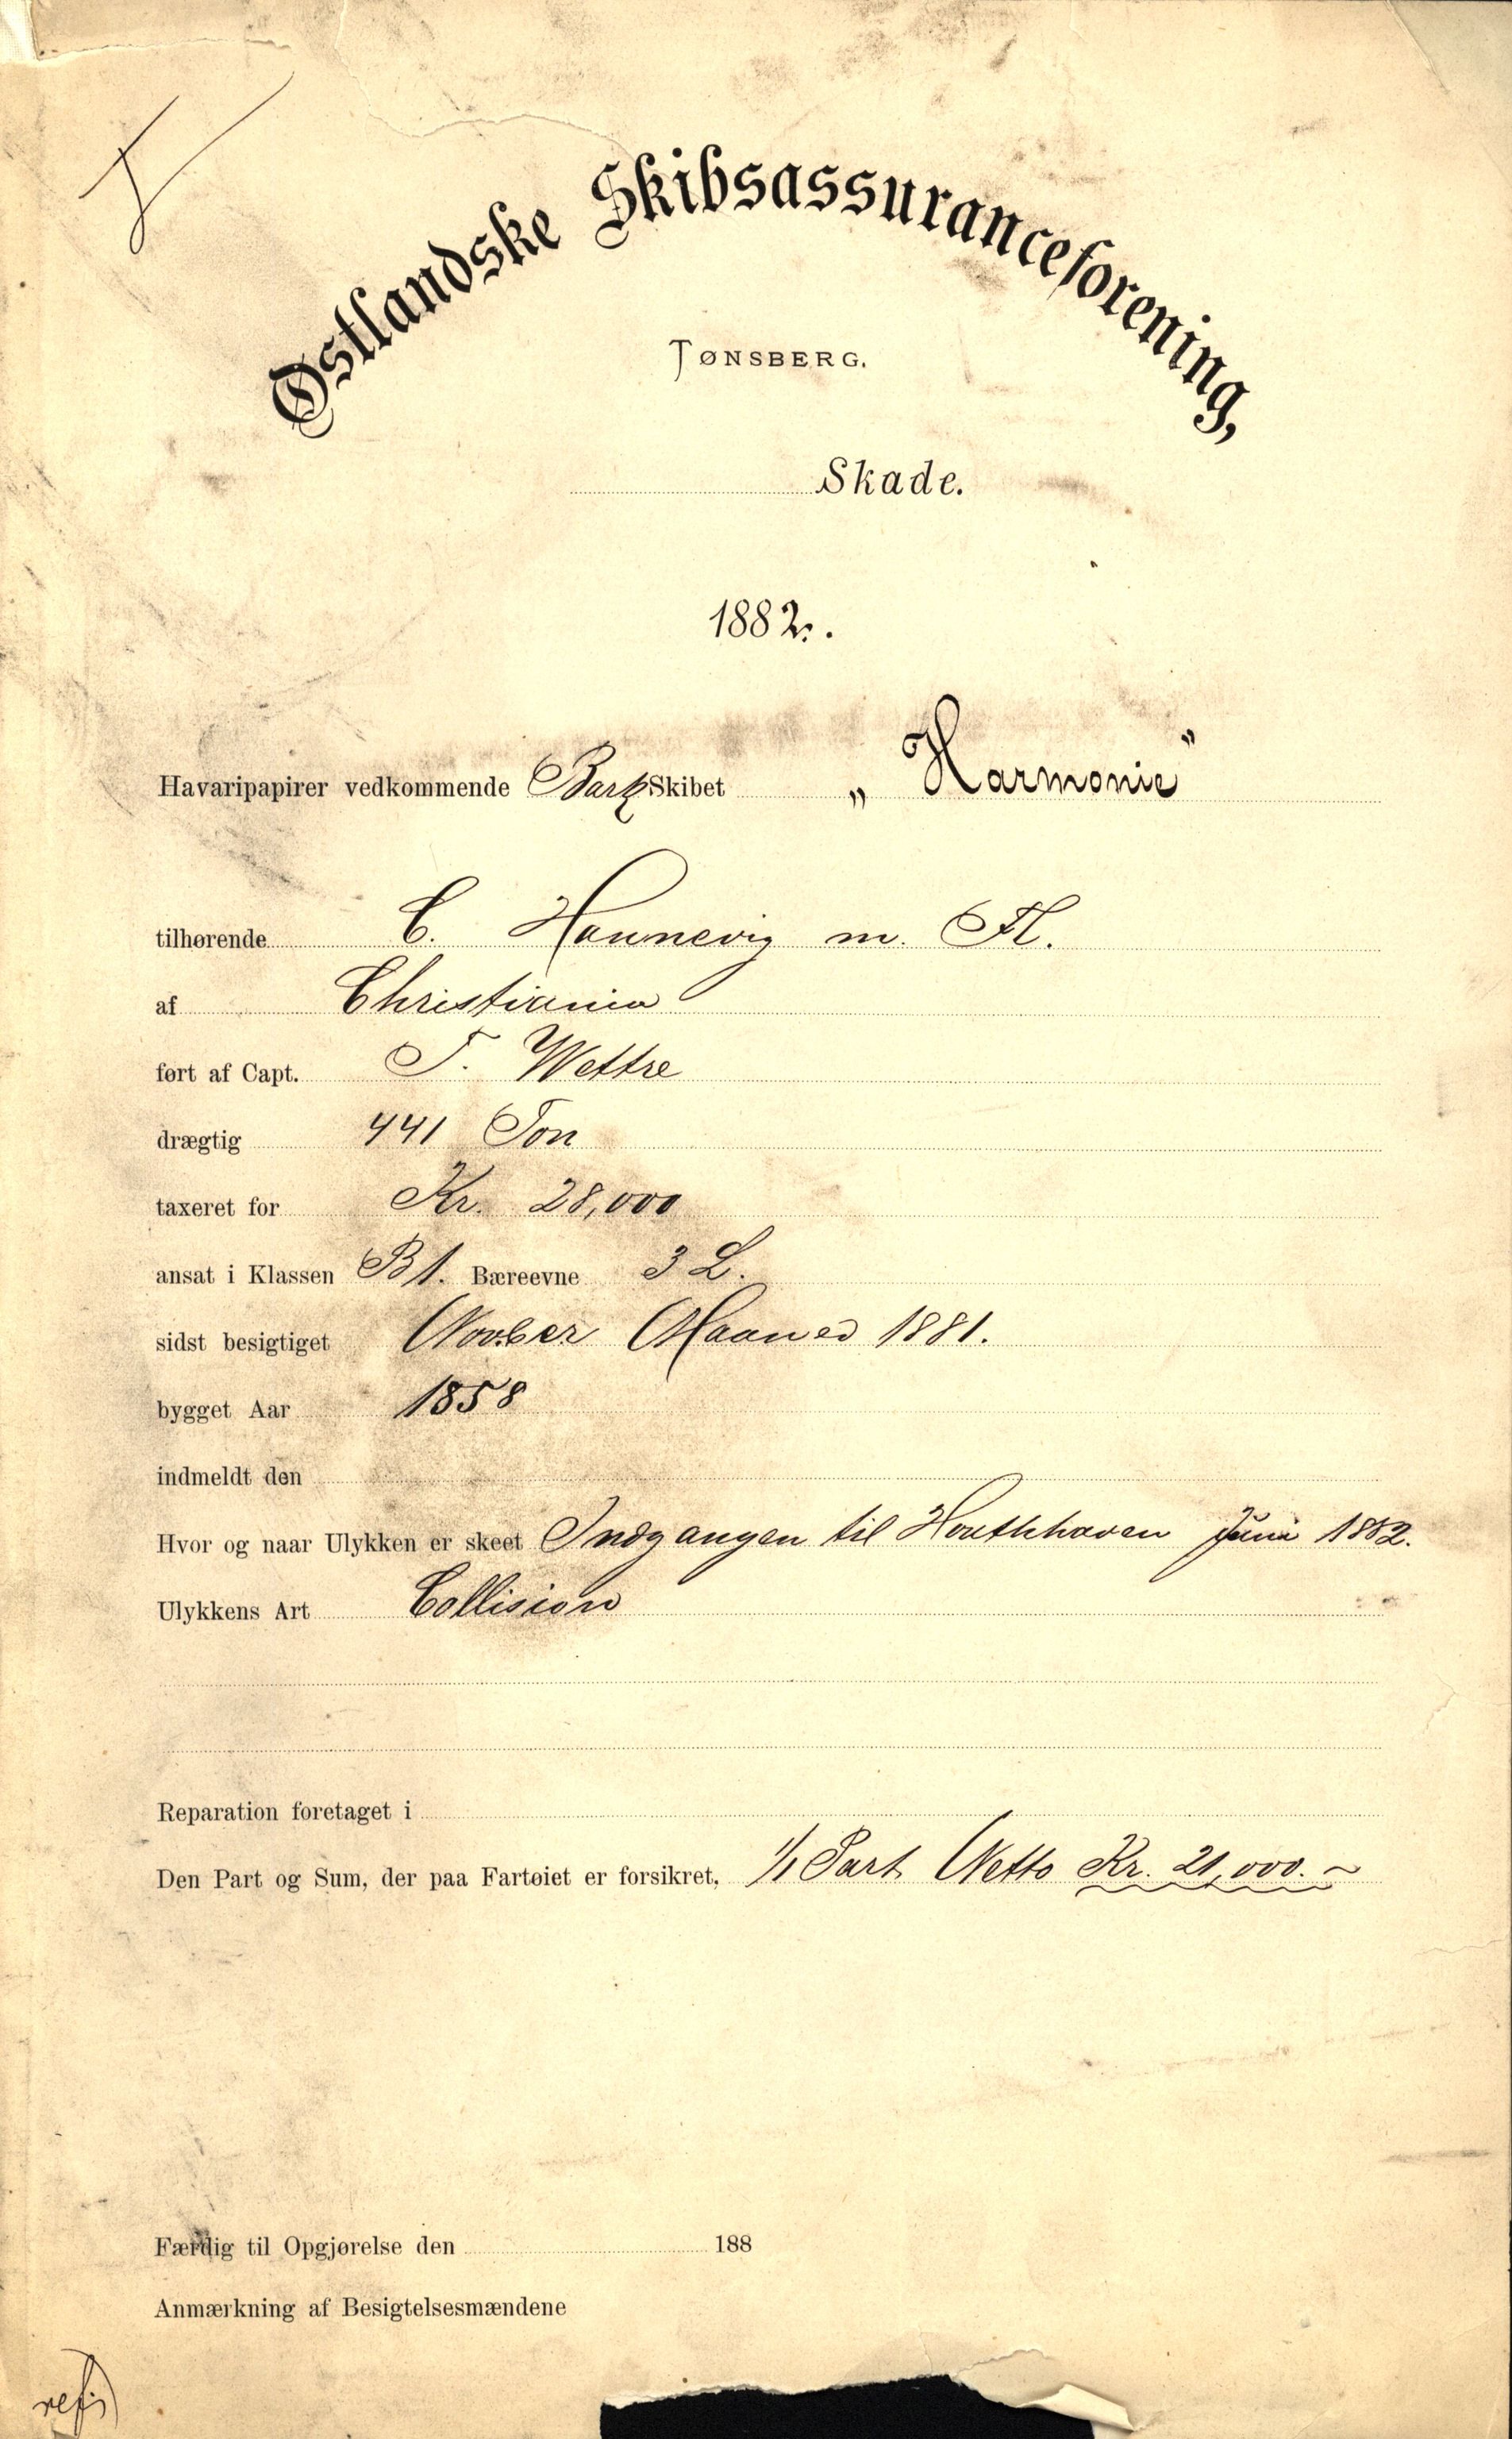 Østlandske Skibsassuranceforening,
TØNSBERG.
Skade.
1882.
Havaripapirer vedkommende Bark Skibet „Harmonie”
tilhørende C. Hannevig m. Fl.
af Christiania
ført af Capt. T. Wettre
drægtig 441 Ton
taxeret for Kr. 28,000
ansat i Klassen B 1. Bæreevne 3 L.
sidst besigtiget Novber Maaned 1881.
bygget Aar 1858
indmeldt den
Hvor og naar Ulykken er skeet Indgangen til Houthhaven Juni 1882.
Ulykkens Art Collision
Reparation foretaget i
Den Part og Sum, der paa Fartøiet er forsikret, 1/1 Part Netto Kr. 21,000. ~
Færdig til Opgjørelse den 188
Anmærkning af Besigtelsesmændene